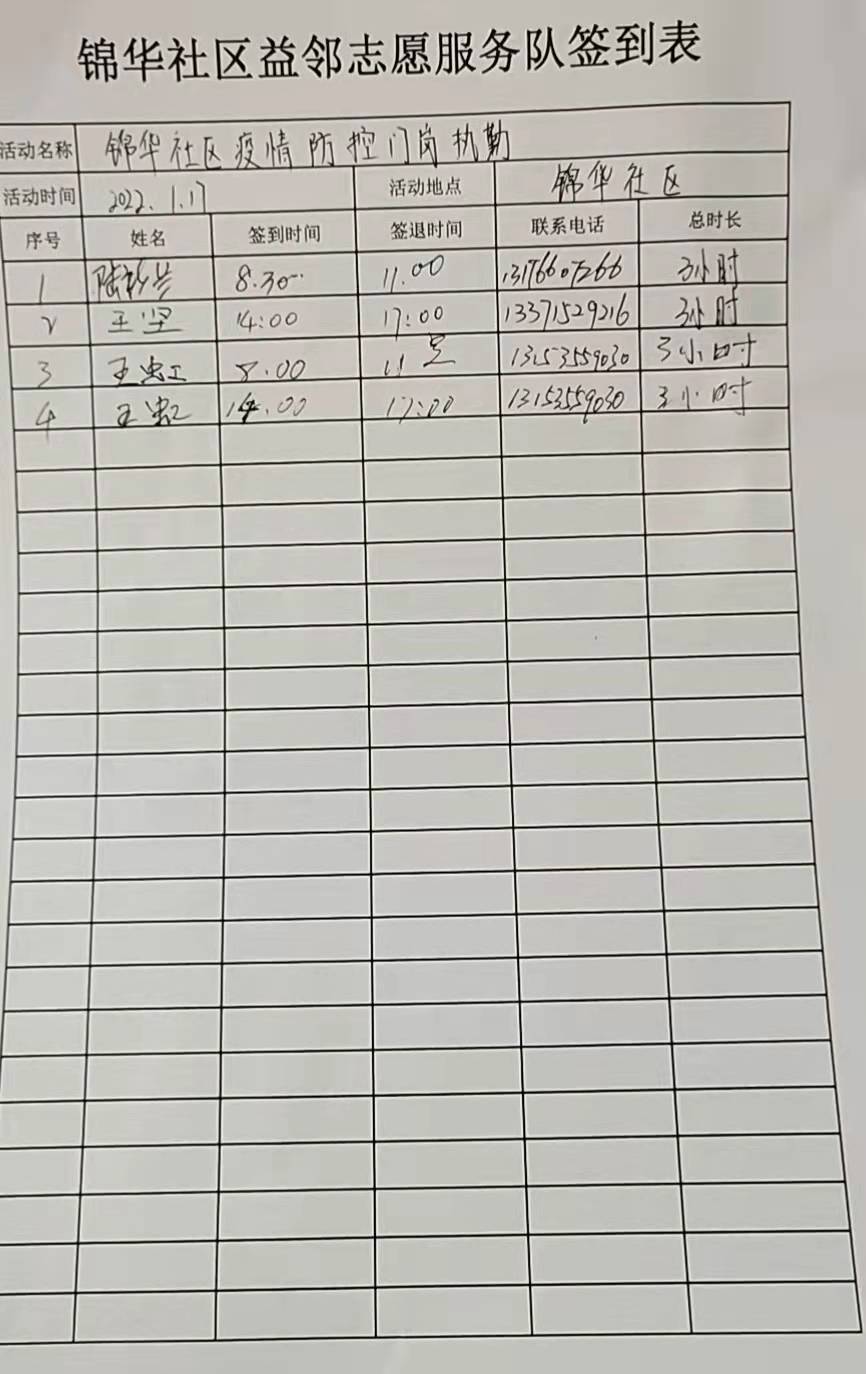 锦华社区益邻志愿服务队签到表
活动名称 锦华社区疫情防控门岗执勤
活动时间 2022.1.17 活动地点 锦华社区
序号 姓名 签到时间 签退时间 联系电话 总时长
1 陆 8.30 11.00 13176607266 3小时
2 王坚 14:00 17:00 13371529216 3小时
3 王虹 8.00 11 13153559030 3小时
4 王虹 14.00 17:00 13153559030 3小时